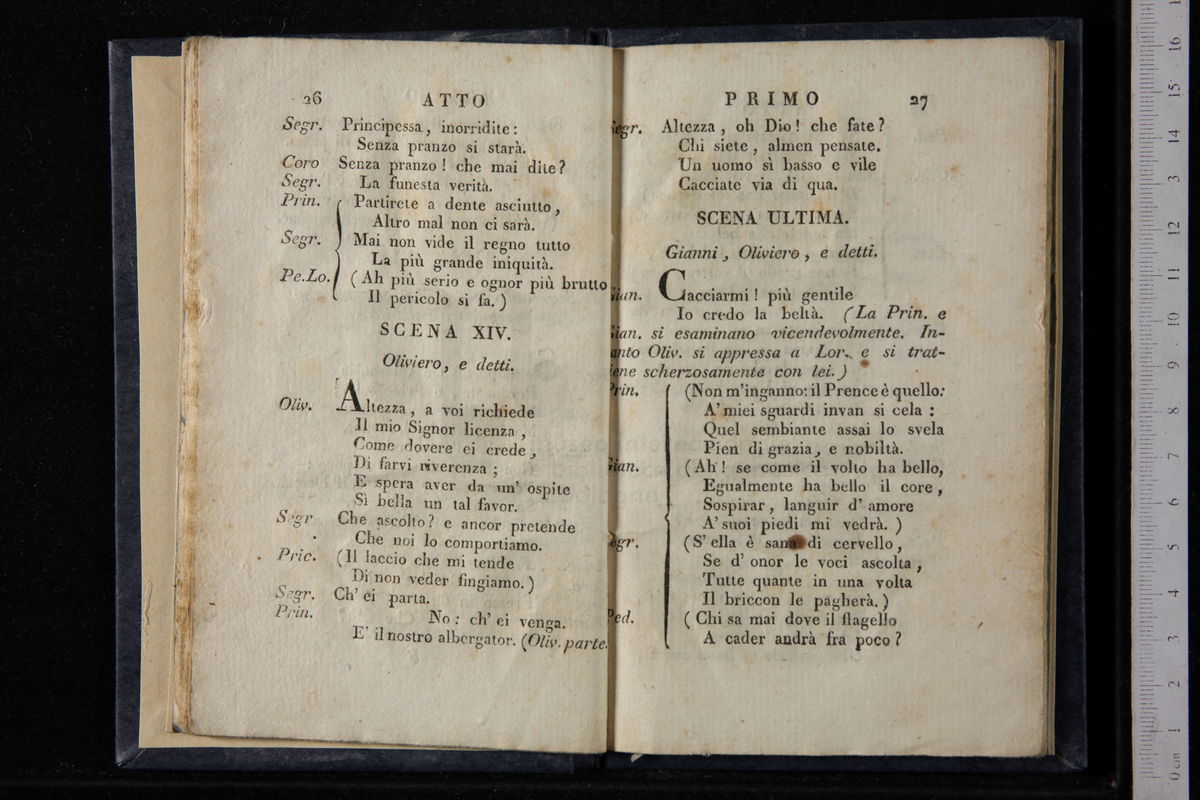 26 ATTO
Segr. Principessa, inorridite:
Senza pranzo si starà.
Coro Senza pranzo! che mai dite?
Segr. La funesta verità.
Prin. Partirete a dente asciutto,
Altro mal non ci sarà.
Segr. Mai non vide il regno tutto
La più grande iniquità.
Pe.Lo. (Ah più serio e ognor più brutto
Il pericolo si fa.)
SCENA XIV.
Oliviero, e detti.
Oliv. Altezza, a voi richiede
Il mio Signor licenza,
Come dovere ei crede,
Di farvi riverenza;
E spera aver da un' ospite
Sì bella un tal favor.
Segr Che ascolto? e ancor pretende
Che noi lo comportiamo.
Pric. (Il laccio che mi tende
Di non veder fingiamo.)
Segr. Ch' ei parta.
Prin. No: ch' ei venga.
E' il nostro albergator. (Oliv. parte.
PRIMO 27
Segr. Altezza, oh Dio! che fate?
Chi siete, almen pensate.
Un uomo sì basso e vile
Cacciate via di qua.
SCENA ULTIMA.
Gianni, Oliviero, e detti.
Gian. Cacciarmi! più gentile
Io credo la beltà. (La Prin. e
Gian. si esaminano vicendevolmente. In-
anto Oliv. si appressa a Lor. e si trat-
iene scherzosamente con lei.)
Prin. (Non m'inganno: il Prence è quello:
A' miei sguardi invan si cela:
Quel sembiante assai lo svela
Pien di grazia, e nobiltà.
Gian. (Ah! se come il volto ha bello,
Egualmente ha bello il core,
Sospirar, languir d' amore
A' suoi piedi mi vedrà.)
Segr. (S' ella è sana di cervello,
Se d' onor le voci ascolta,
Tutte quante in una volta
Il briccon le pagherà.)
Ped. (Chi sa mai dove il flagello
A cader andrà fra poco?
0 cm 1 2 3 4 5 6 7 8 9 10 11 12 13 14 15 16